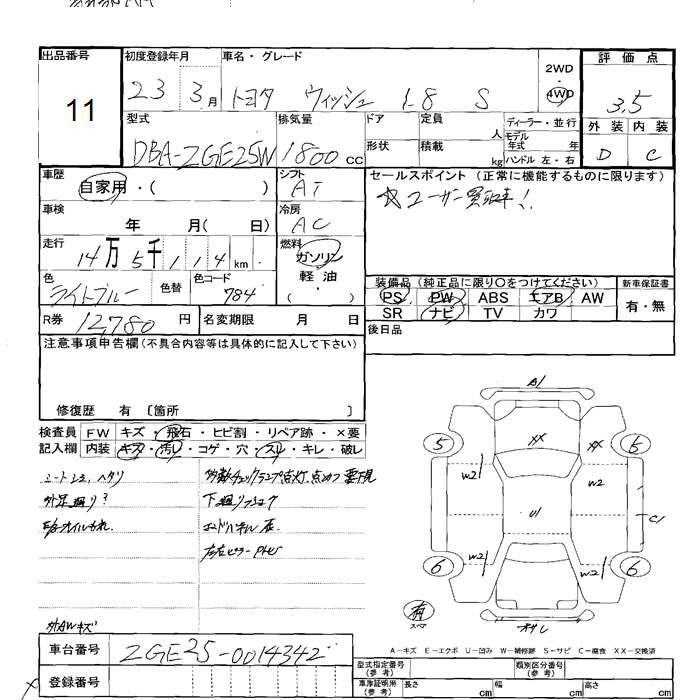 出品番号
11
初度登録年月
23 3月
車名・グレード
トヨタ ウィッシュ 1.8 S
2WD
・
4WD
評価点
3.5
外装 内装
D C
型式
DBA-ZGE25W
排気量
1800cc
ドア
形状
定員 人
積載 kg
ディーラー・並行
モデル年式 年
ハンドル 左・右
車歴
自家用・( )
シフト
AT
セールスポイント (正常に機能するものに限ります)
☆ユーザー買取車!!
車検
年 月( 日)
冷房
AC
走行
14万5千114km
燃料
ガソリン
軽油
( )
色
ライトブルー
色替
色コード
784
装備品 (純正品に限り○をつけてください)
PS PW ABS エアB AW
SR ナビ TV カワ
新車保証書
有・無
R券 12,780円
名変期限 月 日
後日品
注意事項申告欄(不具合内容等は具体的に記入して下さい)
修復歴 有 〔箇所 〕
検査員 FW キズ・飛石・ヒビ割・リペア跡・×要
記入欄 内装 キズ・汚レ・コゲ・穴・スレ・キレ・破レ
外足廻り?
下廻り
外AWキズ
A1
XX
XX
5
5
W2
W2
U1
C1
W2
W2
6
6
有
スペア
A-キズ E-エクボ U-凹み W-補修跡 S-サビ C-腐食 XX-交換済
車台番号
ZGE25-0014342
登録番号
型式指定番号
(参考)
類別区分番号
(参考)
車庫証明用
(参考)
長さ cm 幅 cm 高さ cm